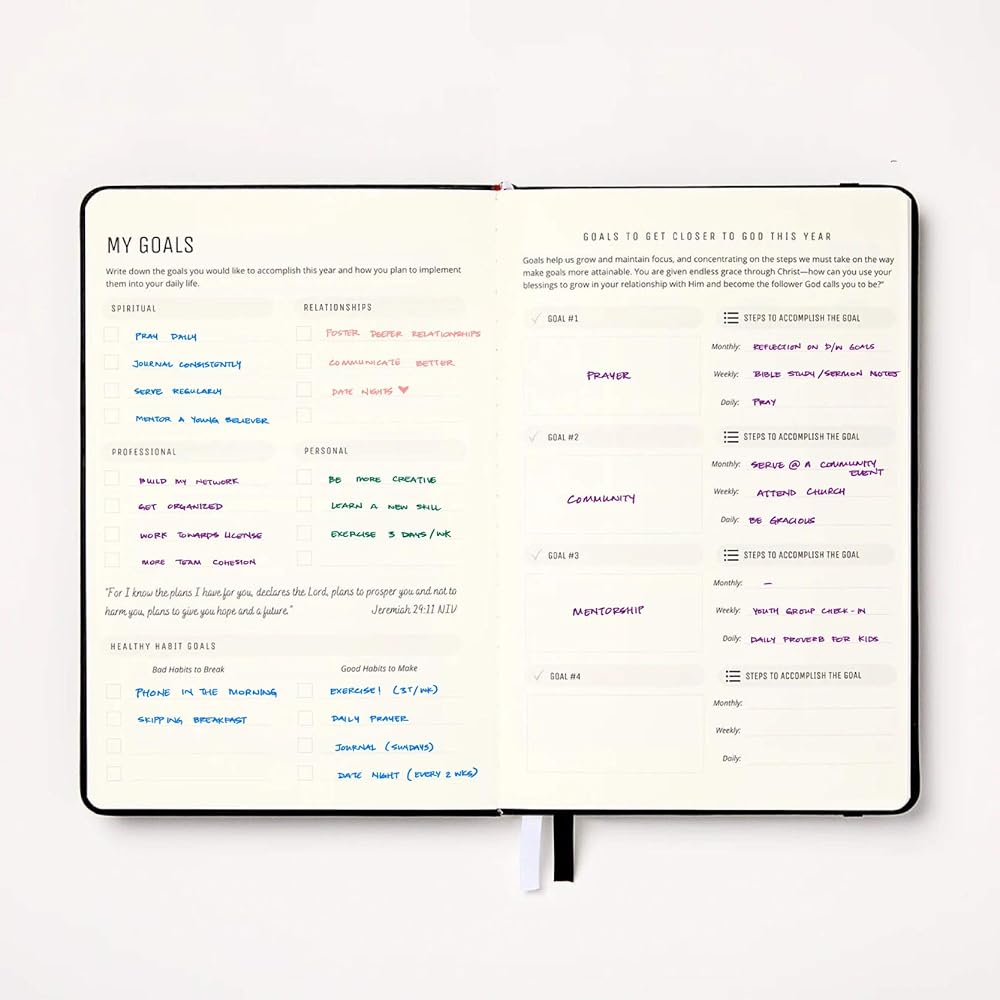 MY GOALS
Write down the goals you would like to accomplish this year and how you plan to implement
them into your daily life.
SPIRITUAL
PRAY DAILY
JOURNAL CONSISTENTLY
SERVE REGULARLY
MENTOR A YOUNG BELIEVER
RELATIONSHIPS
FOSTER DEEPER RELATIONSHIPS
COMMUNICATE BETTER
DATE NIGHTS ♥
PROFESSIONAL
BUILD MY NETWORK
GET ORGANIZED
WORK TOWARDS LICENSE
MORE TEAM COHESION
PERSONAL
BE MORE CREATIVE
LEARN A NEW SKILL
EXERCISE 3 DAYS/WK
"For I know the plans I have for you, declares the Lord, plans to prosper you and not to
harm you, plans to give you hope and a future."
Jeremiah 29:11 NIV
HEALTHY HABIT GOALS
Bad Habits to Break
PHONE IN THE MORNING
SKIPPING BREAKFAST
Good Habits to Make
EXERCISE! (3T/WK)
DAILY PRAYER
JOURNAL (SUNDAYS)
DATE NIGHT (EVERY 2 WKS)
GOALS TO GET CLOSER TO GOD THIS YEAR
Goals help us grow and maintain focus, and concentrating on the steps we must take on the way
make goals more attainable. You are given endless grace through Christ—how can you use your
blessings to grow in your relationship with Him and become the follower God calls you to be?"
GOAL #1
PRAYER
STEPS TO ACCOMPLISH THE GOAL
Monthly: REFLECTION ON D/W GOALS
Weekly: BIBLE STUDY/SERMON NOTES
Daily: PRAY
GOAL #2
COMMUNITY
STEPS TO ACCOMPLISH THE GOAL
Monthly: SERVE @ A COMMUNITY
EVENT
Weekly: ATTEND CHURCH
Daily: BE GRACIOUS
GOAL #3
MENTORSHIP
STEPS TO ACCOMPLISH THE GOAL
Monthly: –
Weekly: YOUTH GROUP CHECK-IN
Daily: DAILY PROVERB FOR KIDS
GOAL #4
STEPS TO ACCOMPLISH THE GOAL
Monthly:
Weekly:
Daily: